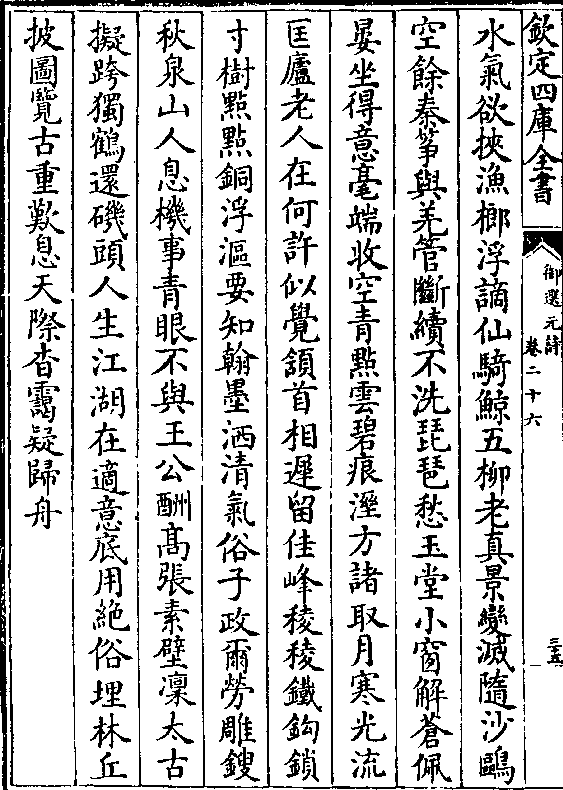 欽定四庫全書
御選元詩
卷二十六
三十五
水氣欲挾漁榔浮謫仙騎鯨五柳老真景變滅隨沙鷗
空餘秦箏與羌管斷續不洗琵琶愁玉堂小窗解蒼佩
晏坐得意毫端收空青點雲碧痕溼方諸取月寒光流
匡廬老人在何許似覺頷首相遲留佳峰稜稜鐵鈎鎖
寸樹點點銅浮漚要知翰墨洒清氣俗子政爾勞雕鎪
秋泉山人息機事青眼不與王公酬髙張素壁凜太古
擬跨獨鶴還磯頭人生江湖在適意底用絶俗埋林丘
披圖覽古重歎息天際杳靄疑歸舟